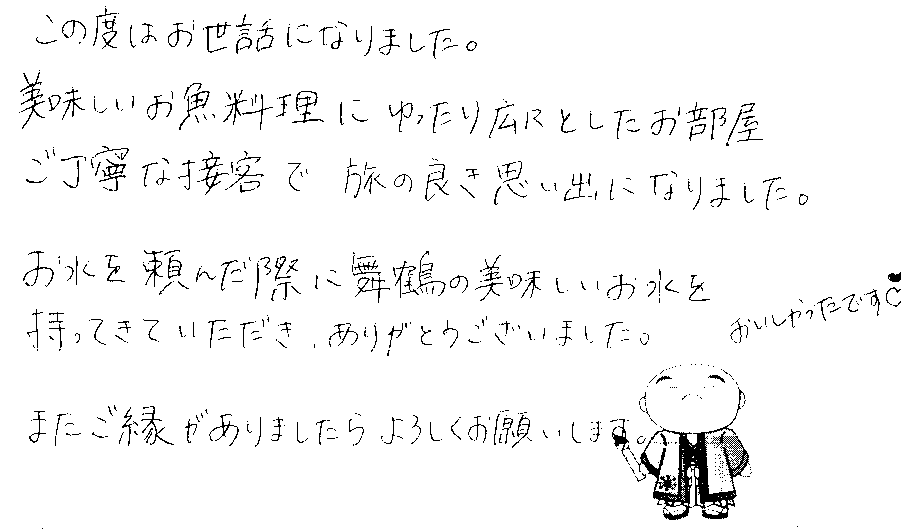 この度はお世話になりました。
美味しいお魚料理に ゆったり広々としたお部屋
ご丁寧な接客で 旅の良き思い出になりました。
お水を頼んだ際に舞鶴の美味しいお水を
持ってきていただき、ありがとうございました。
おいしかったです
またご縁がありましたらよろしくお願いします。